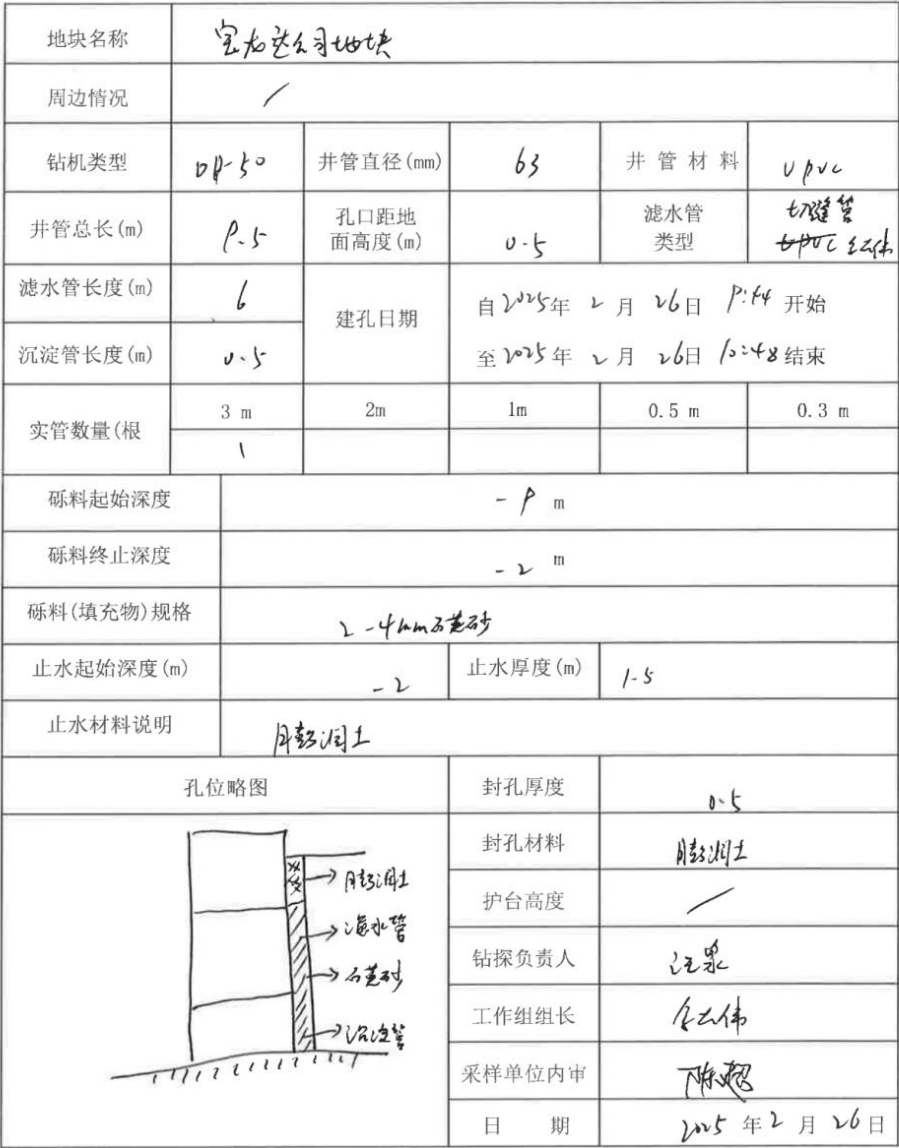 地块名称 宝龙达公司地块
周边情况 /
钻机类型 DP-50 井管直径(mm) 63 井管材料 UPVC
井管总长(m) 9.5 孔口距地面高度(m) 0.5 滤水管类型 切缝管
滤水管长度(m) 6 建孔日期 自2025年 2 月 26日 9:54 开始
沉淀管长度(m) 0.5 至2025年 2 月 26日 10:48 结束
实管数量(根 3 m 2m 1m 0.5 m 0.3 m
1
砾料起始深度 -9 m
砾料终止深度 -2 m
砾料(填充物)规格 2-4mm石英砂
止水起始深度(m) -2 止水厚度(m) 1.5
止水材料说明 膨润土
孔位略图 封孔厚度 0.5
封孔材料 膨润土
护台高度 /
钻探负责人 汪泉
工作组组长
采样单位内审 陈超
日 期 2025 年 2 月 26 日
膨润土
滤水管
石英砂
沉淀管